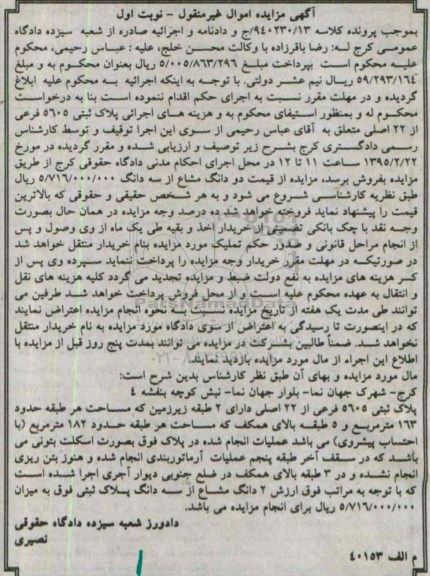 آگهی مزایده اموال غیرمنقول – نوبت اول
بموجب پرونده کلاسه ۹۴۰۲۳۰/۱۳/ج و دادنامه و اجرائیه صادره از شعبه سیزده دادگاه
عمومی کرج له: رضا باقرزاده با وکالت محسن خلج، علیه: عباس رحیمی، محکوم
علیه محکوم است بپرداخت مبلغ ۵/۰۰۵/۸۶۳/۲۹۶ ریال بعنوان محکوم به و مبلغ
۵۹/۲۹۳/۱۶۴ ریال نیم عشر دولتی. با توجه به اینکه اجرائیه به محکوم علیه ابلاغ
گردیده و در مهلت مقرر نسبت به اجرای حکم اقدام ننموده است بنا به درخواست
محکوم له و بمنظور استیفای محکوم به و هزینه های اجرائی پلاک ثبتی ۵۶۰۵ فرعی
از ۲۲ اصلی متعلق به آقای عباس رحیمی از سوی این اجرا توقیف و توسط کارشناس
رسمی دادگستری کرج بشرح زیر توصیف و ارزیابی شده و مقرر گردیده در مورخ
۱۳۹۵/۲/۲۲ ساعت ۱۱ تا ۱۲ در محل اجرای احکام مدنی دادگاه حقوقی کرج از طریق
مزایده بفروش برسد، مزایده از قیمت دو دانگ مشاع از سه دانگ ۵/۷۱۶/۰۰۰/۰۰۰ ریال
طبق نظریه کارشناسی شروع می شود و به هر شخص حقیقی و حقوقی که بالاترین
قیمت را پیشنهاد نماید فروخته خواهد شد ده درصد وجه مزایده در همان حال بصورت
وجه نقد یا چک بانکی تضمینی از خریدار اخذ و بقیه طی یک ماه از وی وصول و پس
از انجام مراحل قانونی و صدور حکم تملیک مورد مزایده بنام خریدار منتقل خواهد شد
در صورتیکه در مهلت مقرر خریدار وجه مزایده را پرداخت ننماید سپرده وی پس از
کسر هزینه های مزایده به نفع دولت ضبط و مزایده تجدید می گردد کلیه هزینه های نقل
و انتقال به عهده محکوم علیه است و از محل فروش پرداخت خواهد شد طرفین می
توانند طی مدت یک هفته از تاریخ مزایده نسبت به نحوه انجام مزایده اعتراض نمایند
که در اینصورت تا رسیدگی به اعتراض از سوی دادگاه مورد مزایده به نام خریدار منتقل
نخواهد شد. ضمناً طالبین بشرکت در مزایده می توانند بمدت پنج روز قبل از مزایده با
اطلاع این اجراء از مال مورد مزایده بازدید نمایند.
مال مورد مزایده و بهای آن طبق نظر کارشناس بدین شرح است:
کرج- شهرک جهان نما- بلوار جهان نما- نبش کوچه بنفشه ۴
پلاک ثبتی ۵۶۰۵ فرعی از ۲۲ اصلی دارای ۲ طبقه زیرزمین که مساحت هر طبقه حدود
۱۶۳ مترمربع و ۵ طبقه بالای همکف که مساحت هر طبقه حدود ۱۸۲ مترمربع (با
احتساب پیشروی) می باشد عملیات انجام شده در پلاک فوق بصورت اسکلت بتونی می
باشد که در سقف آخر طبقه پنجم عملیات آرماتوربندی انجام شده و هنوز بتن ریزی
انجام نشده و در ۳ طبقه بالای همکف در ضلع جنوبی دیوار آجری اجرا شده است
که با توجه به مراتب فوق ارزش ۲ دانگ مشاع از سه دانگ پلاک ثبتی فوق به میزان
۵/۷۱۶/۰۰۰/۰۰۰ ریال برای انجام مزایده می باشد.
دادورز شعبه سیزده دادگاه حقوقی
نصیری
م الف ۴۰۱۵۳